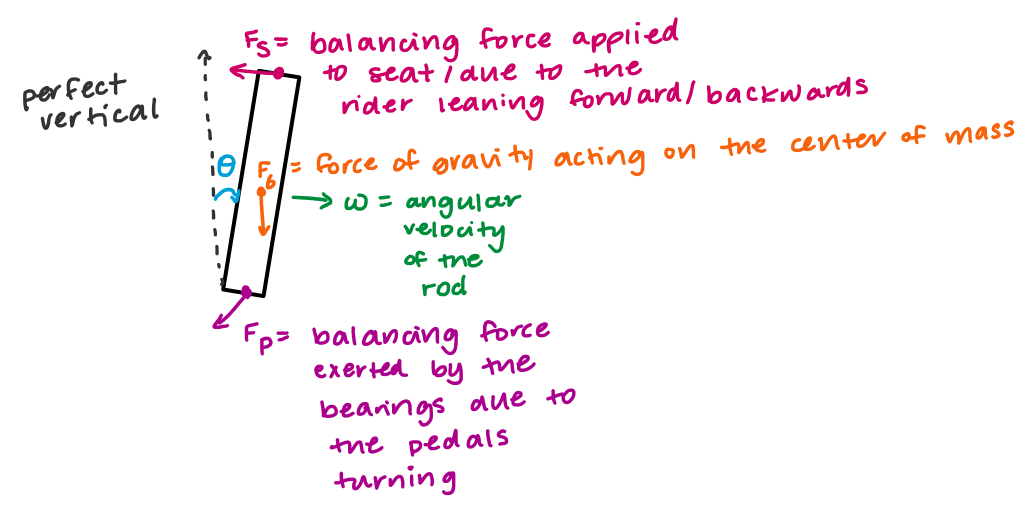 F_S = balancing force applied
to seat/due to the
rider leaning forward/backwards
perfect
vertical
θ
F_G = force of gravity acting on the center of mass
ω = angular
velocity
of the
rod
F_P = balancing force
exerted by the
bearings due to
the pedals
turning